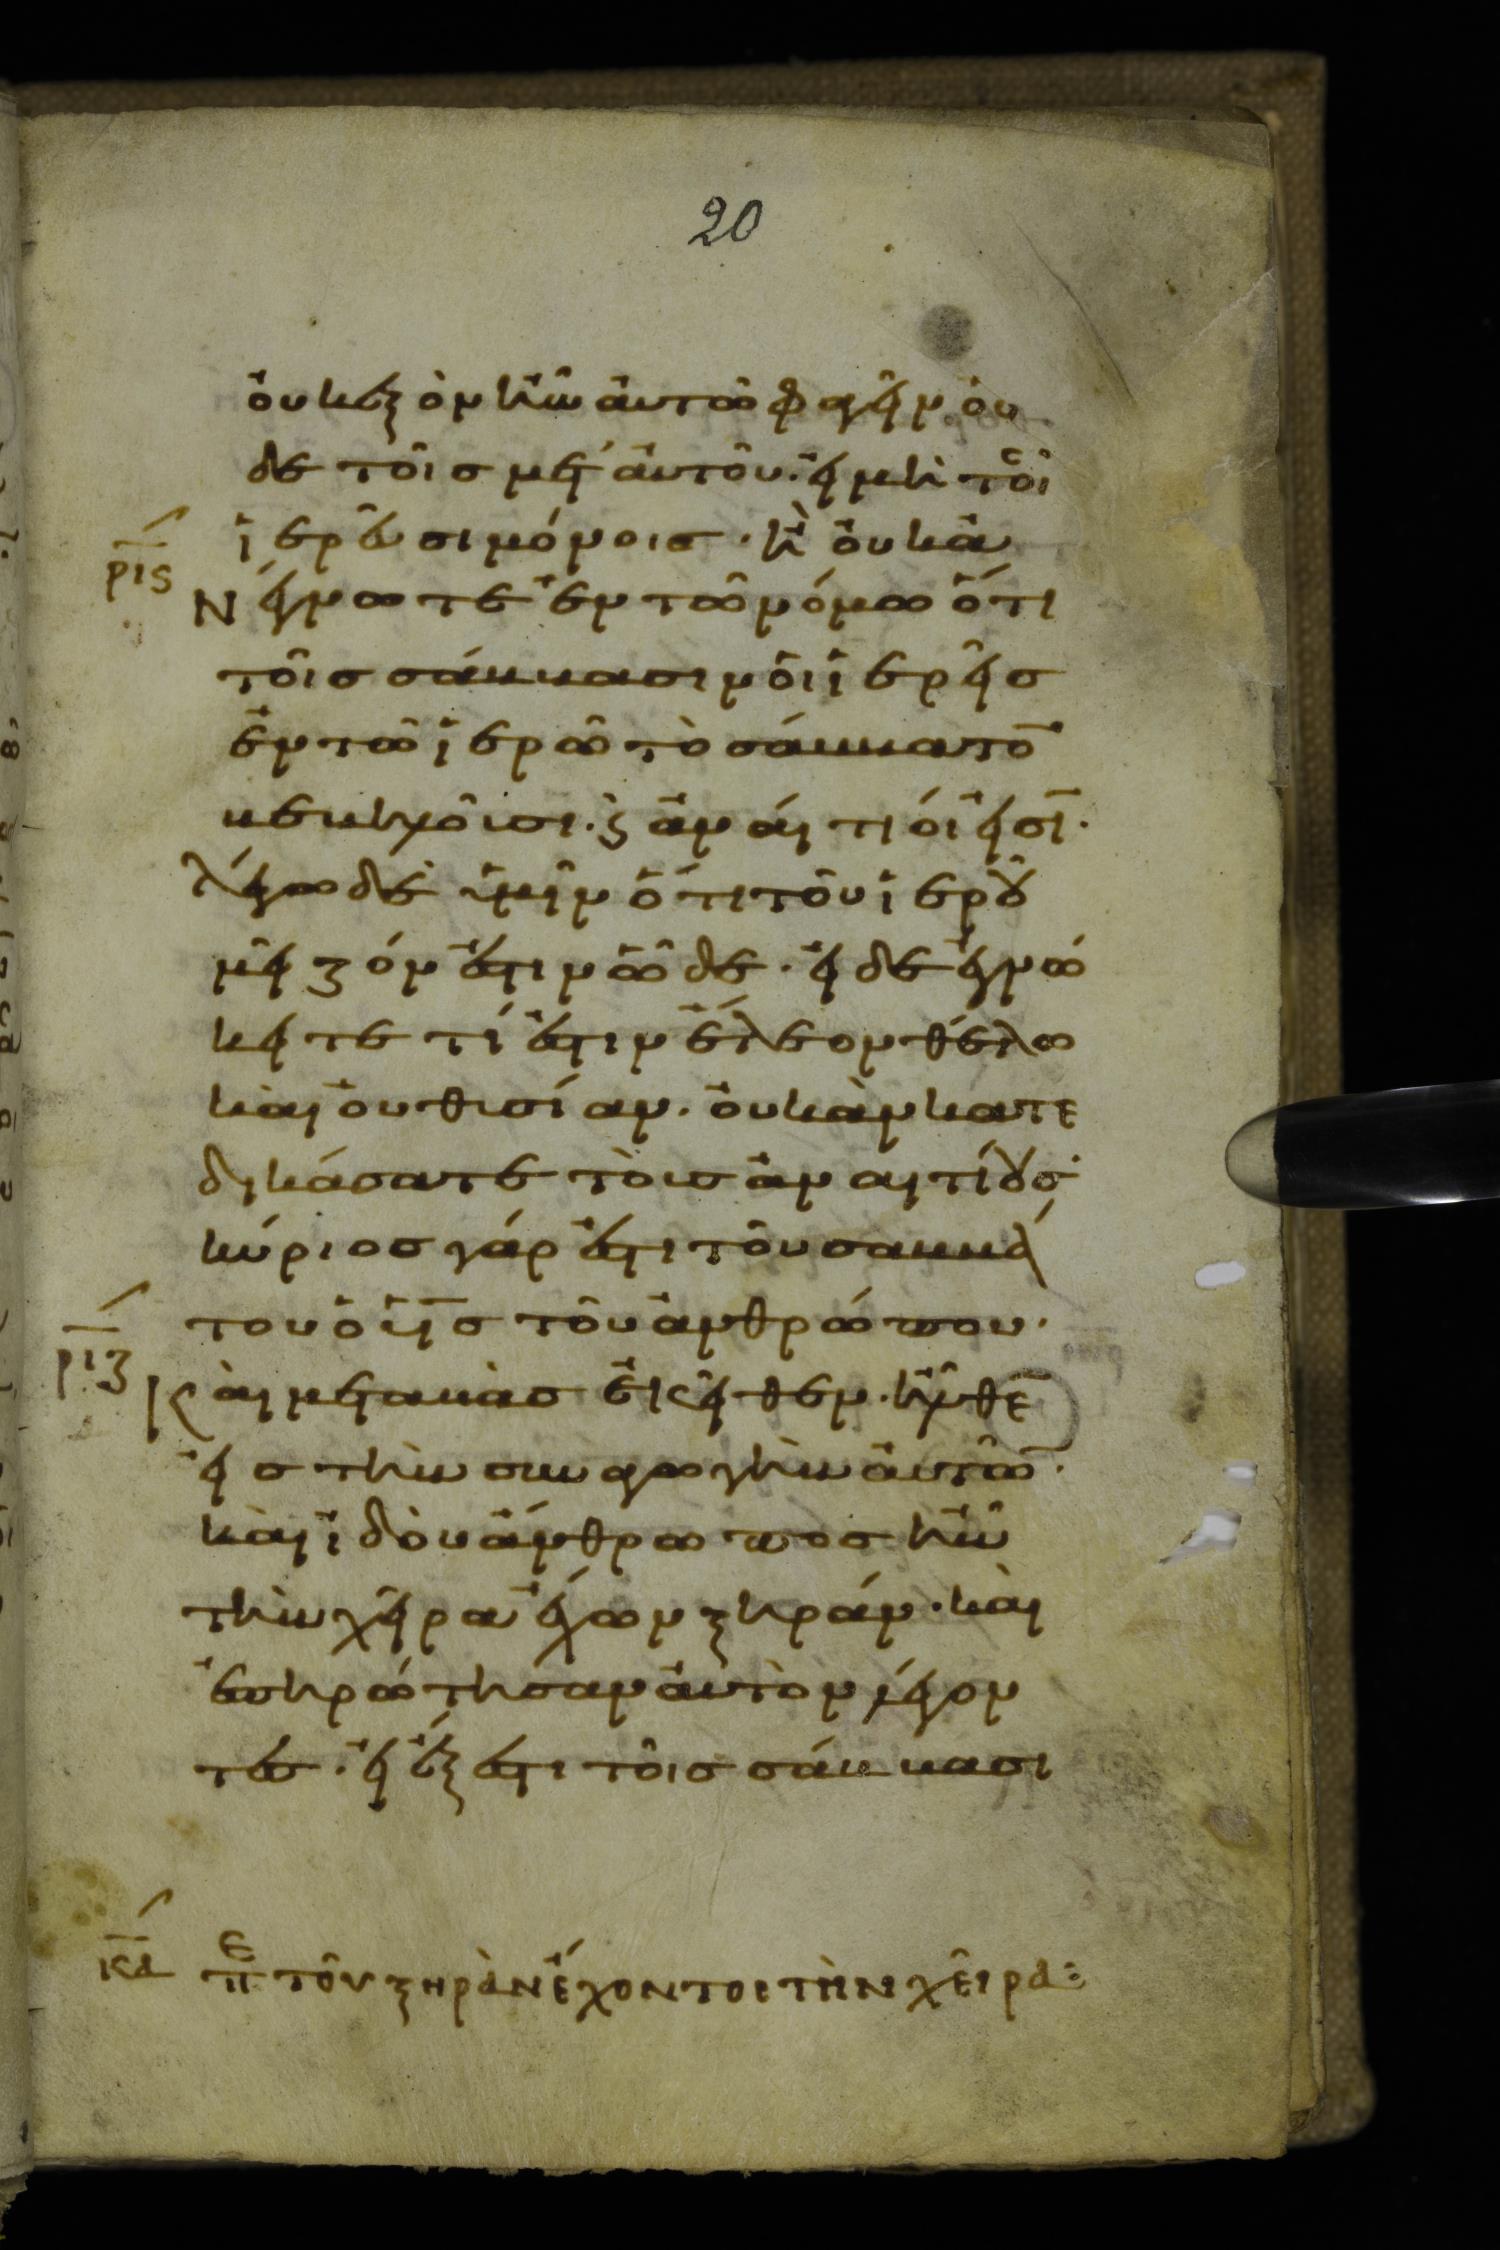 20
ὀυκ ἐξὸν ἠῶ ἀυτῶ φαγεῖν ὀυ
δε τοῖσ μετ' ἀυτοῦ. εἰ μὴ τοῖσ
ἱερεῦσι μόνοισ· ἢ ὀυκ ἀ
ρις
Νέγνωτε ἐν τῶ νόμω ὅτι
τοῖσ σάββασιν ὁι ἱερεῖσ
ἐν τῶ ἱερῶ τὸ σάββατο̄
βεβηλοῦσι. ϗ ἀναίτιόι εἰσῑ.
λέγω δὲ ὑμῖν ὅτι τοῦ ἱεροῦ
μεῖζόν ἐστιν ὧδε. εἰ δὲ ἐγνώ
κειτε τί ἐστιν ἔλεον θέλω
καὶ ὀυ θυσίαν. ὀυκ ἂν κατε
δικάσατε τοὺσ ἀναιτίουσ·
κύριοσ γάρ ἐστι τοῦ σαββά
του ὁ ὑ̅σ̅ τοῦ ἀνθρώπου.
ριζ
Καὶ μεταβὰσ ἐκεῖθεν. ἦλθε̄
εἰσ τὴν συναγωγὴν ἀυτῶ̄.
καὶ ἰδοὺ ἄνθρωποσ ἦν
τὴν χεῖρα ἔχων ξηράν. καὶ
ἐπηρώτησαν ἀυτὸν λέγον
τεσ. εἰ ἔξεστι τοῖσ σάββασι
κα πε τοῦ ξηρὰν ἔχοντοσ τὴν χεῖρα: